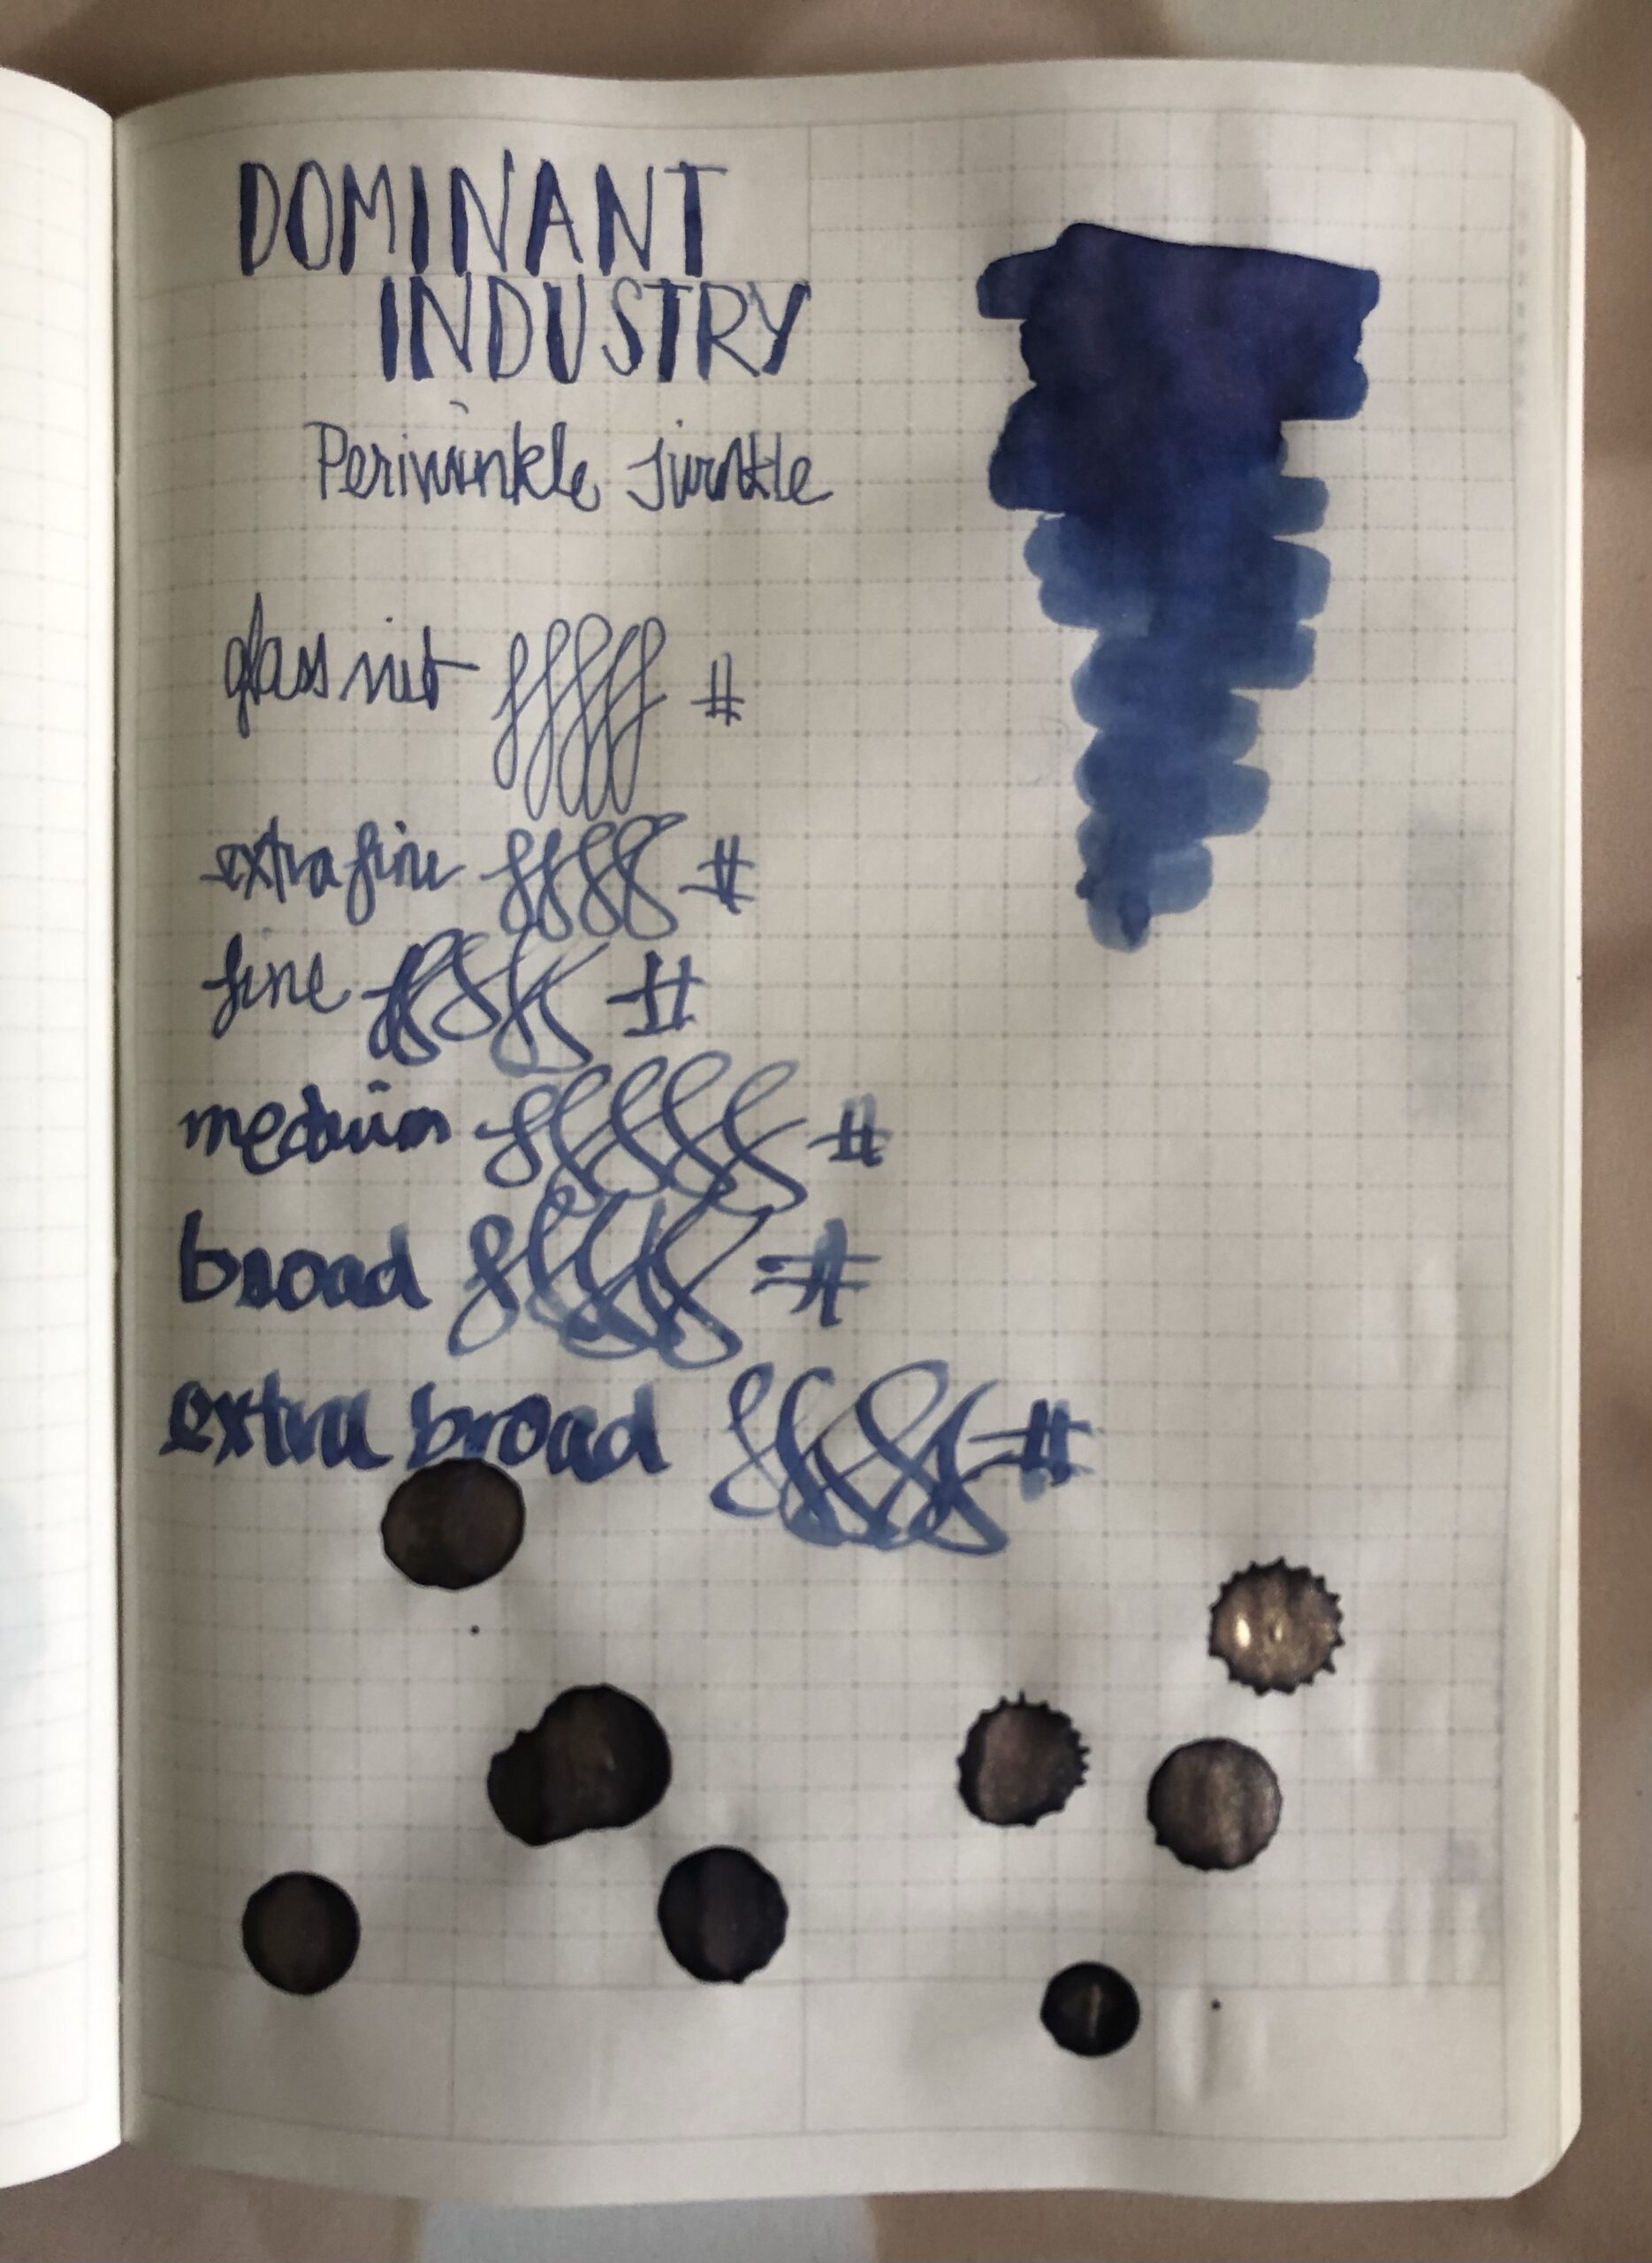 DOMINANT
INDUSTRY
Periwinkle
glass nib #
extra fine #
fine #
medium #
broad #
extra broad #